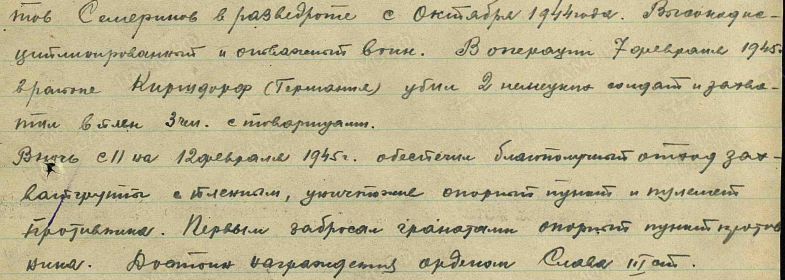 тов Семеринов в разведроте с октября 1944 года. Высокодис-
циплинированный и отважный воин. В операции 7 февраля 1945г.
в районе Киршдорф (Германия) убил 2 немецких солдат и захва-
тил в плен 3 чел. с товарищами.
В ночь с 11 на 12 февраля 1945г. обеспечил благополучный отход зах-
ватгруппы с пленным, уничтожив опорный пункт и пулемет
противника. Первым забросал гранатами опорный пункт против
ника. Достоин награждения орденом Слава III ст.